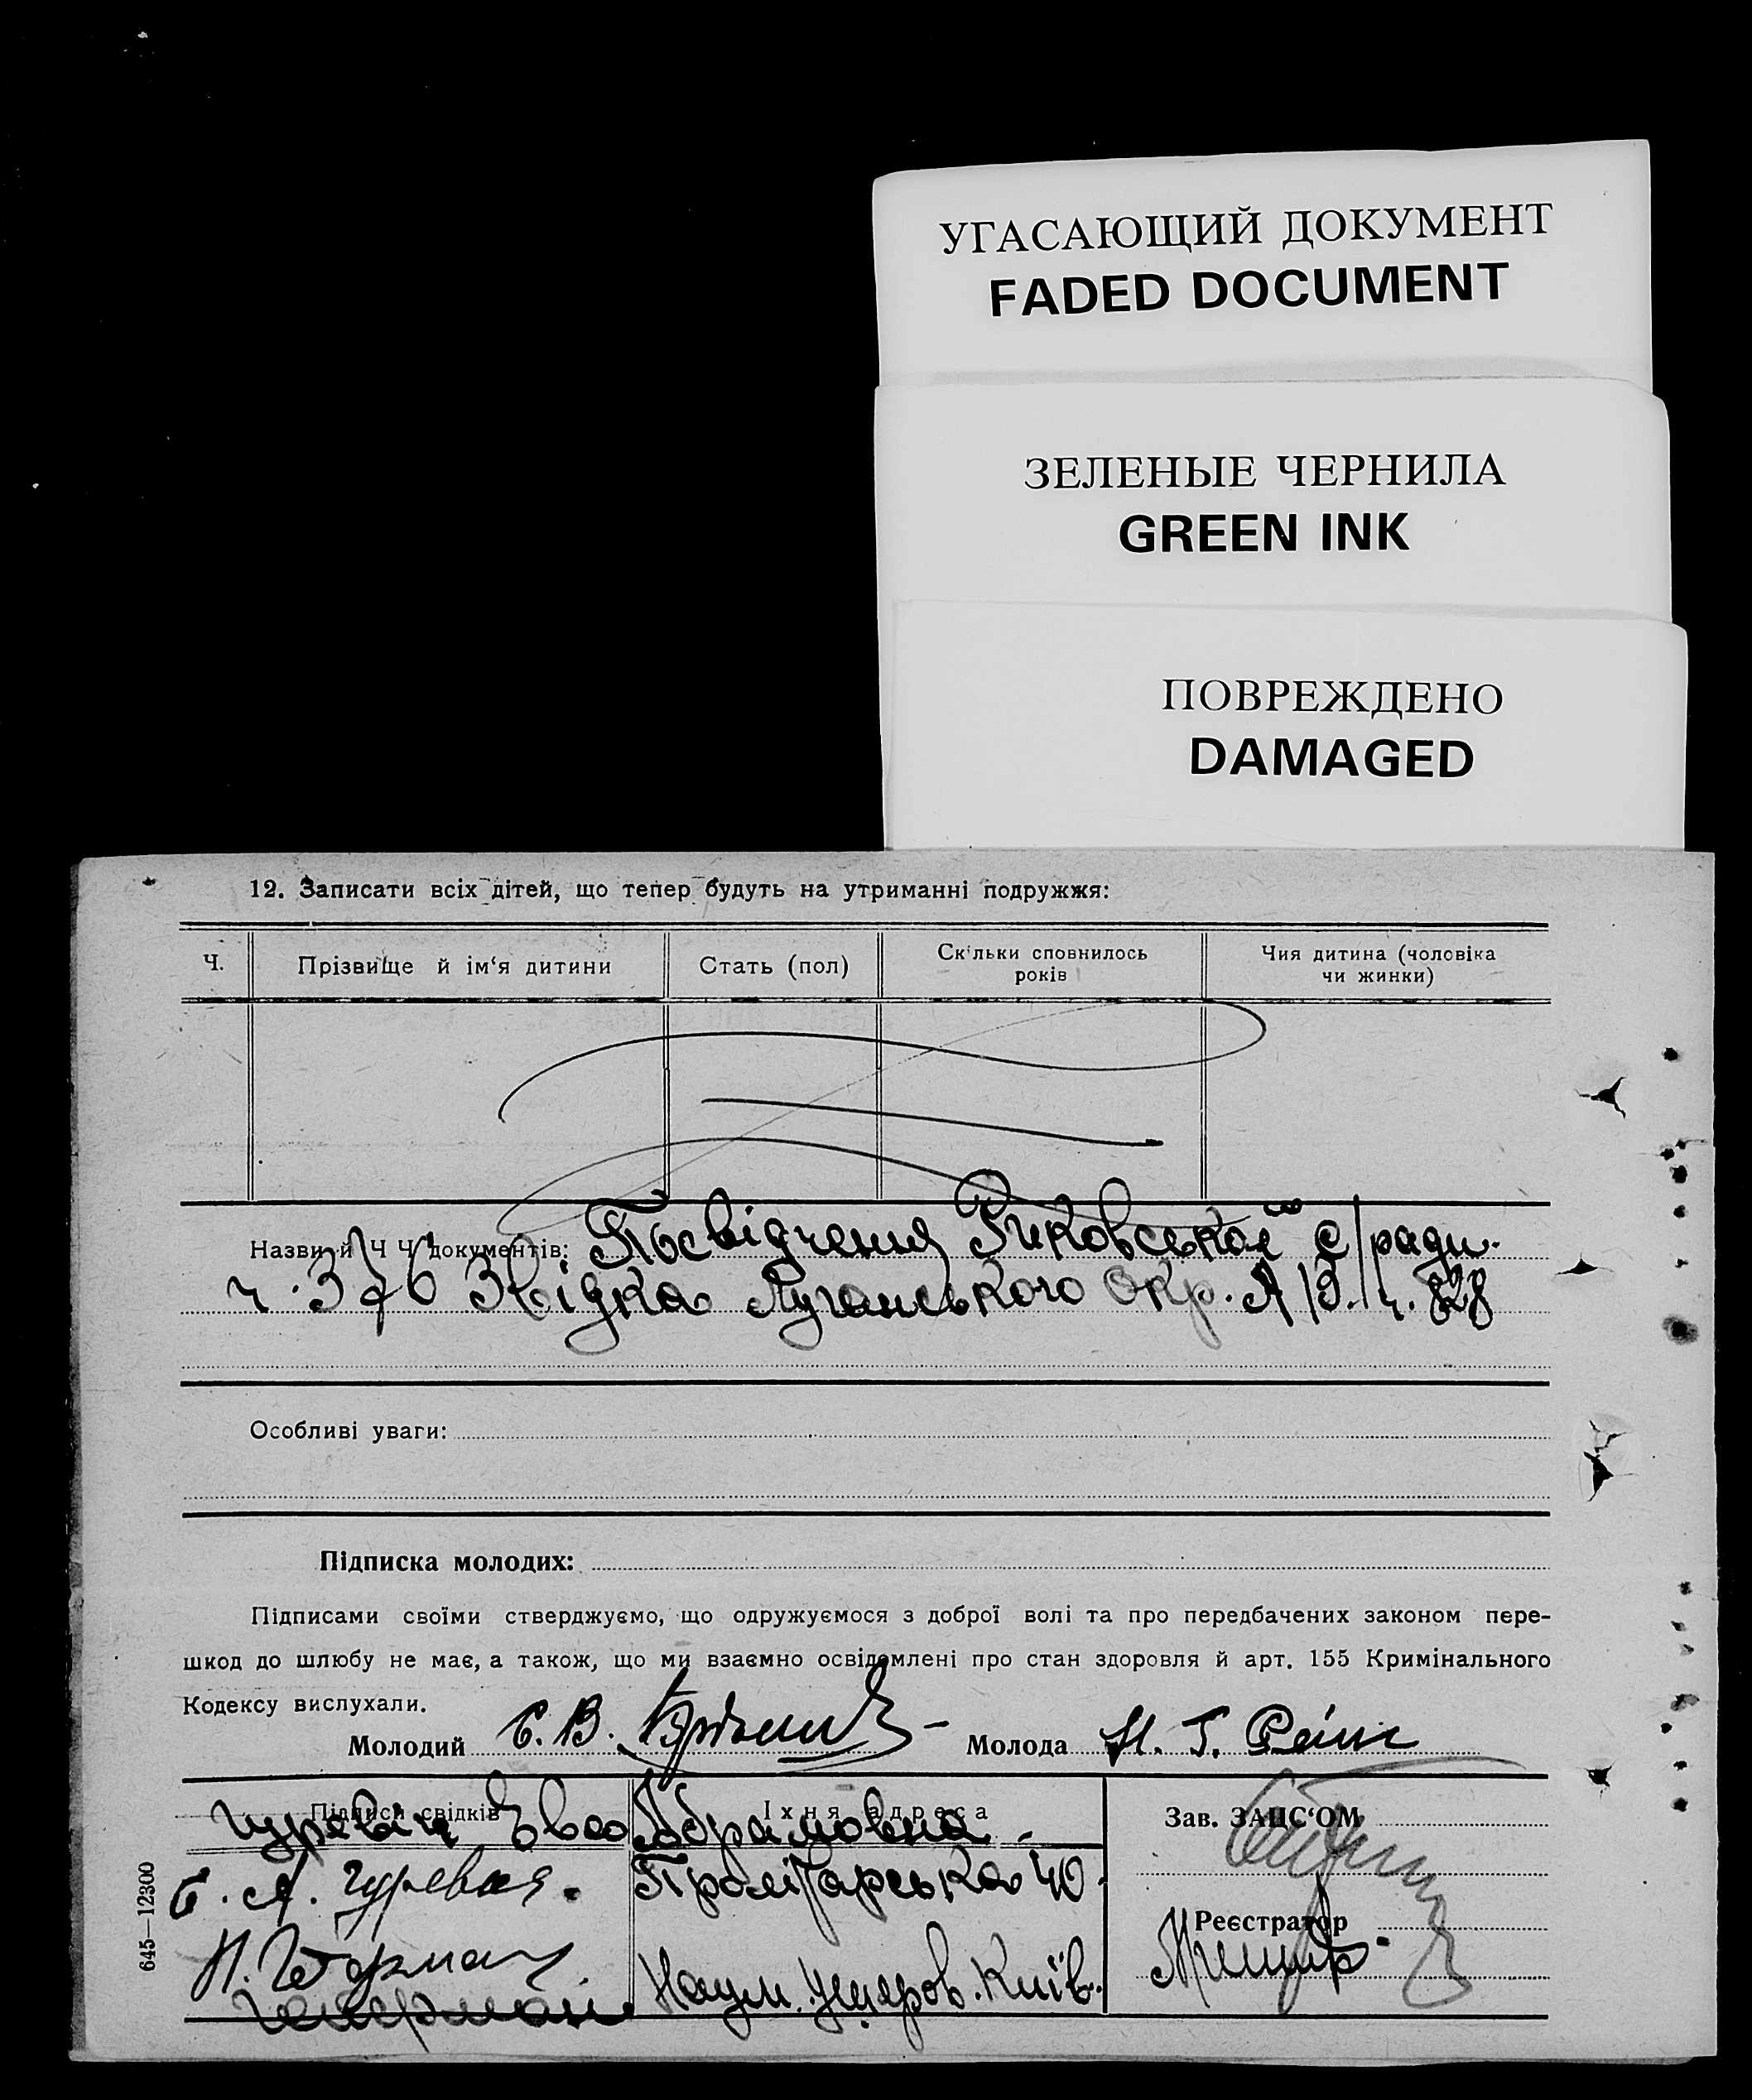 УГАСАЮЩИЙ ДОКУМЕНТ
FADED DOCUMENT
ЗЕЛЕНЫЕ ЧЕРНИЛА
GREEN INK
ПОВРЕЖДЕНО
DAMAGED
12. Записати всіх дітей, що тепер будуть на утриманні подружжя:
Ч.
Прізвище й ім‘я дитини
Стать (пол)
Скільки сповнилось
років
Чия дитина (чоловіка
чи жинки)
Назви й Ч Ч документів: Посвідчення Риковської с/ради.
ч. 376 Звідка Луганського Окр. А/В. ч. 828
Особливі уваги:
Підписка молодих:
Підписами своїми стверджуємо, що одружуємося з доброї волі та про передбачених законом пере-
шкод до шлюбу не має, а також, що ми взаємно освідомлені про стан здоровля й арт. 155 Кримінального
Кодексу вислухали.
Молодий Є. В.
Молода Н. Г.
Підписи свідків
Їхня адреса
Гуревіч Єва Абрамовна.
Є. А. Гуревич.
Пролітарська 40.
Н. Гетерман
Гетерман
Наум. Київ.
Зав. ЗАЦС‘ОМ
Реєстратор
645—12300